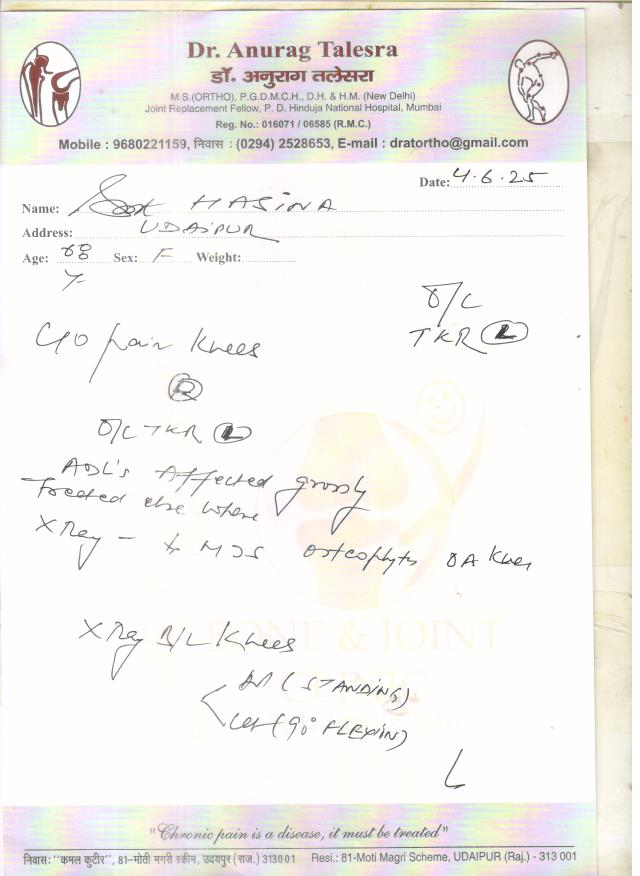 Dr. Anurag Talesra
डॉ. अनुराग तलेसरा
M.S.(ORTHO), P.G.D.M.C.H., D.H. & H.M. (New Delhi)
Joint Replacement Fellow, P. D. Hinduja National Hospital, Mumbai
Reg. No.: 016071 / 06585 (R.M.C.)
Mobile : 9680221159, निवास : (0294) 2528653, E-mail : dratortho@gmail.com
Date: 4.6.25
Name: HASINA
Address: UDAIPUR
Age: 68 Sex: F Weight:
O/C
TKR L
C/O pain knees
R
O/C TKR L
ADL's Affected grossly
Treated else where
X Ray - MJS osteophyts OA Knee
X Ray B/L Knees
BONE & JOINT
CLINIC
AP (STANDING)
Lat (90° FLEXION)
"Chronic pain is a disease, it must be treated"
निवास: "कमल कुटीर", 81-मोती मगरी स्कीम, उदयपुर (राज.) 313001 Resi.: 81-Moti Magri Scheme, UDAIPUR (Raj.) - 313 001